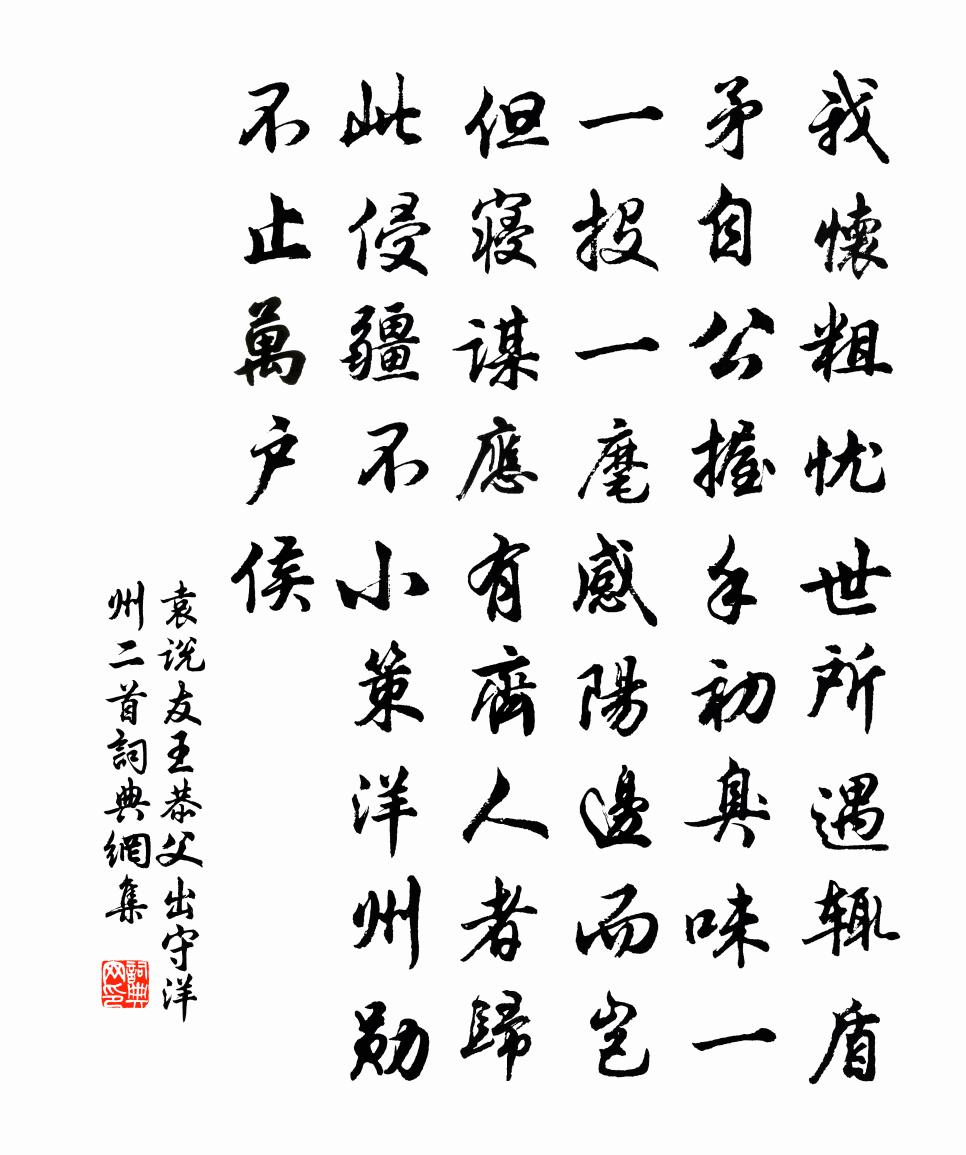 我懷粗忧世所遇辄盾
矛自公握手初臭味一
一投一麾感陽邊而岂
但寝谋應有齊人者歸
此侵疆不小策洋州勋
不止萬户侯
袁说友王恭父出守洋
州二首詞典網集
詞典
网印